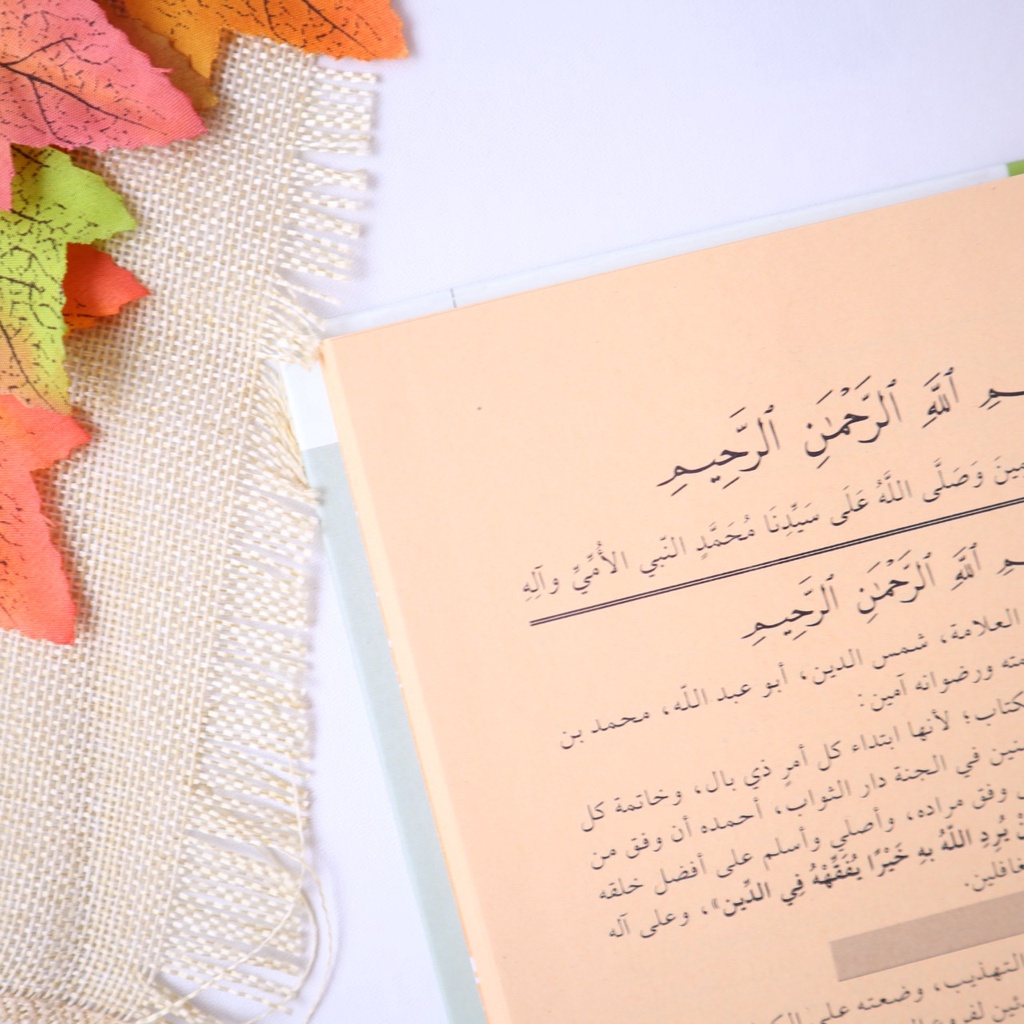 ٱللَّهِ ٱلرَّحْمَٰنِ ٱلرَّحِيمِ
وَصَلَّى اللَّهُ عَلَى سَيِّدِنَا مُحَمَّدٍ النّبي الأُمِّيِّ وآلِهِ
ٱللَّهِ ٱلرَّحْمَٰنِ ٱلرَّحِيمِ
العلامة، شمس الدين، أبو عبد اللّه، محمد بن
ورضوانه آمين:
لأنها ابتداء كل أمرٍ ذي بال، وخاتمة كل
في الجنة دار الثواب، أحمده أن وفق من
وفق مراده، وأصلي وأسلم على أفضل خلقه
يُرِدِ اللَّهُ بِهِ خَيْرًا يُفَقِّهْهُ فِي الدِّين»، وعلى آله
التهذيب، وضعته على